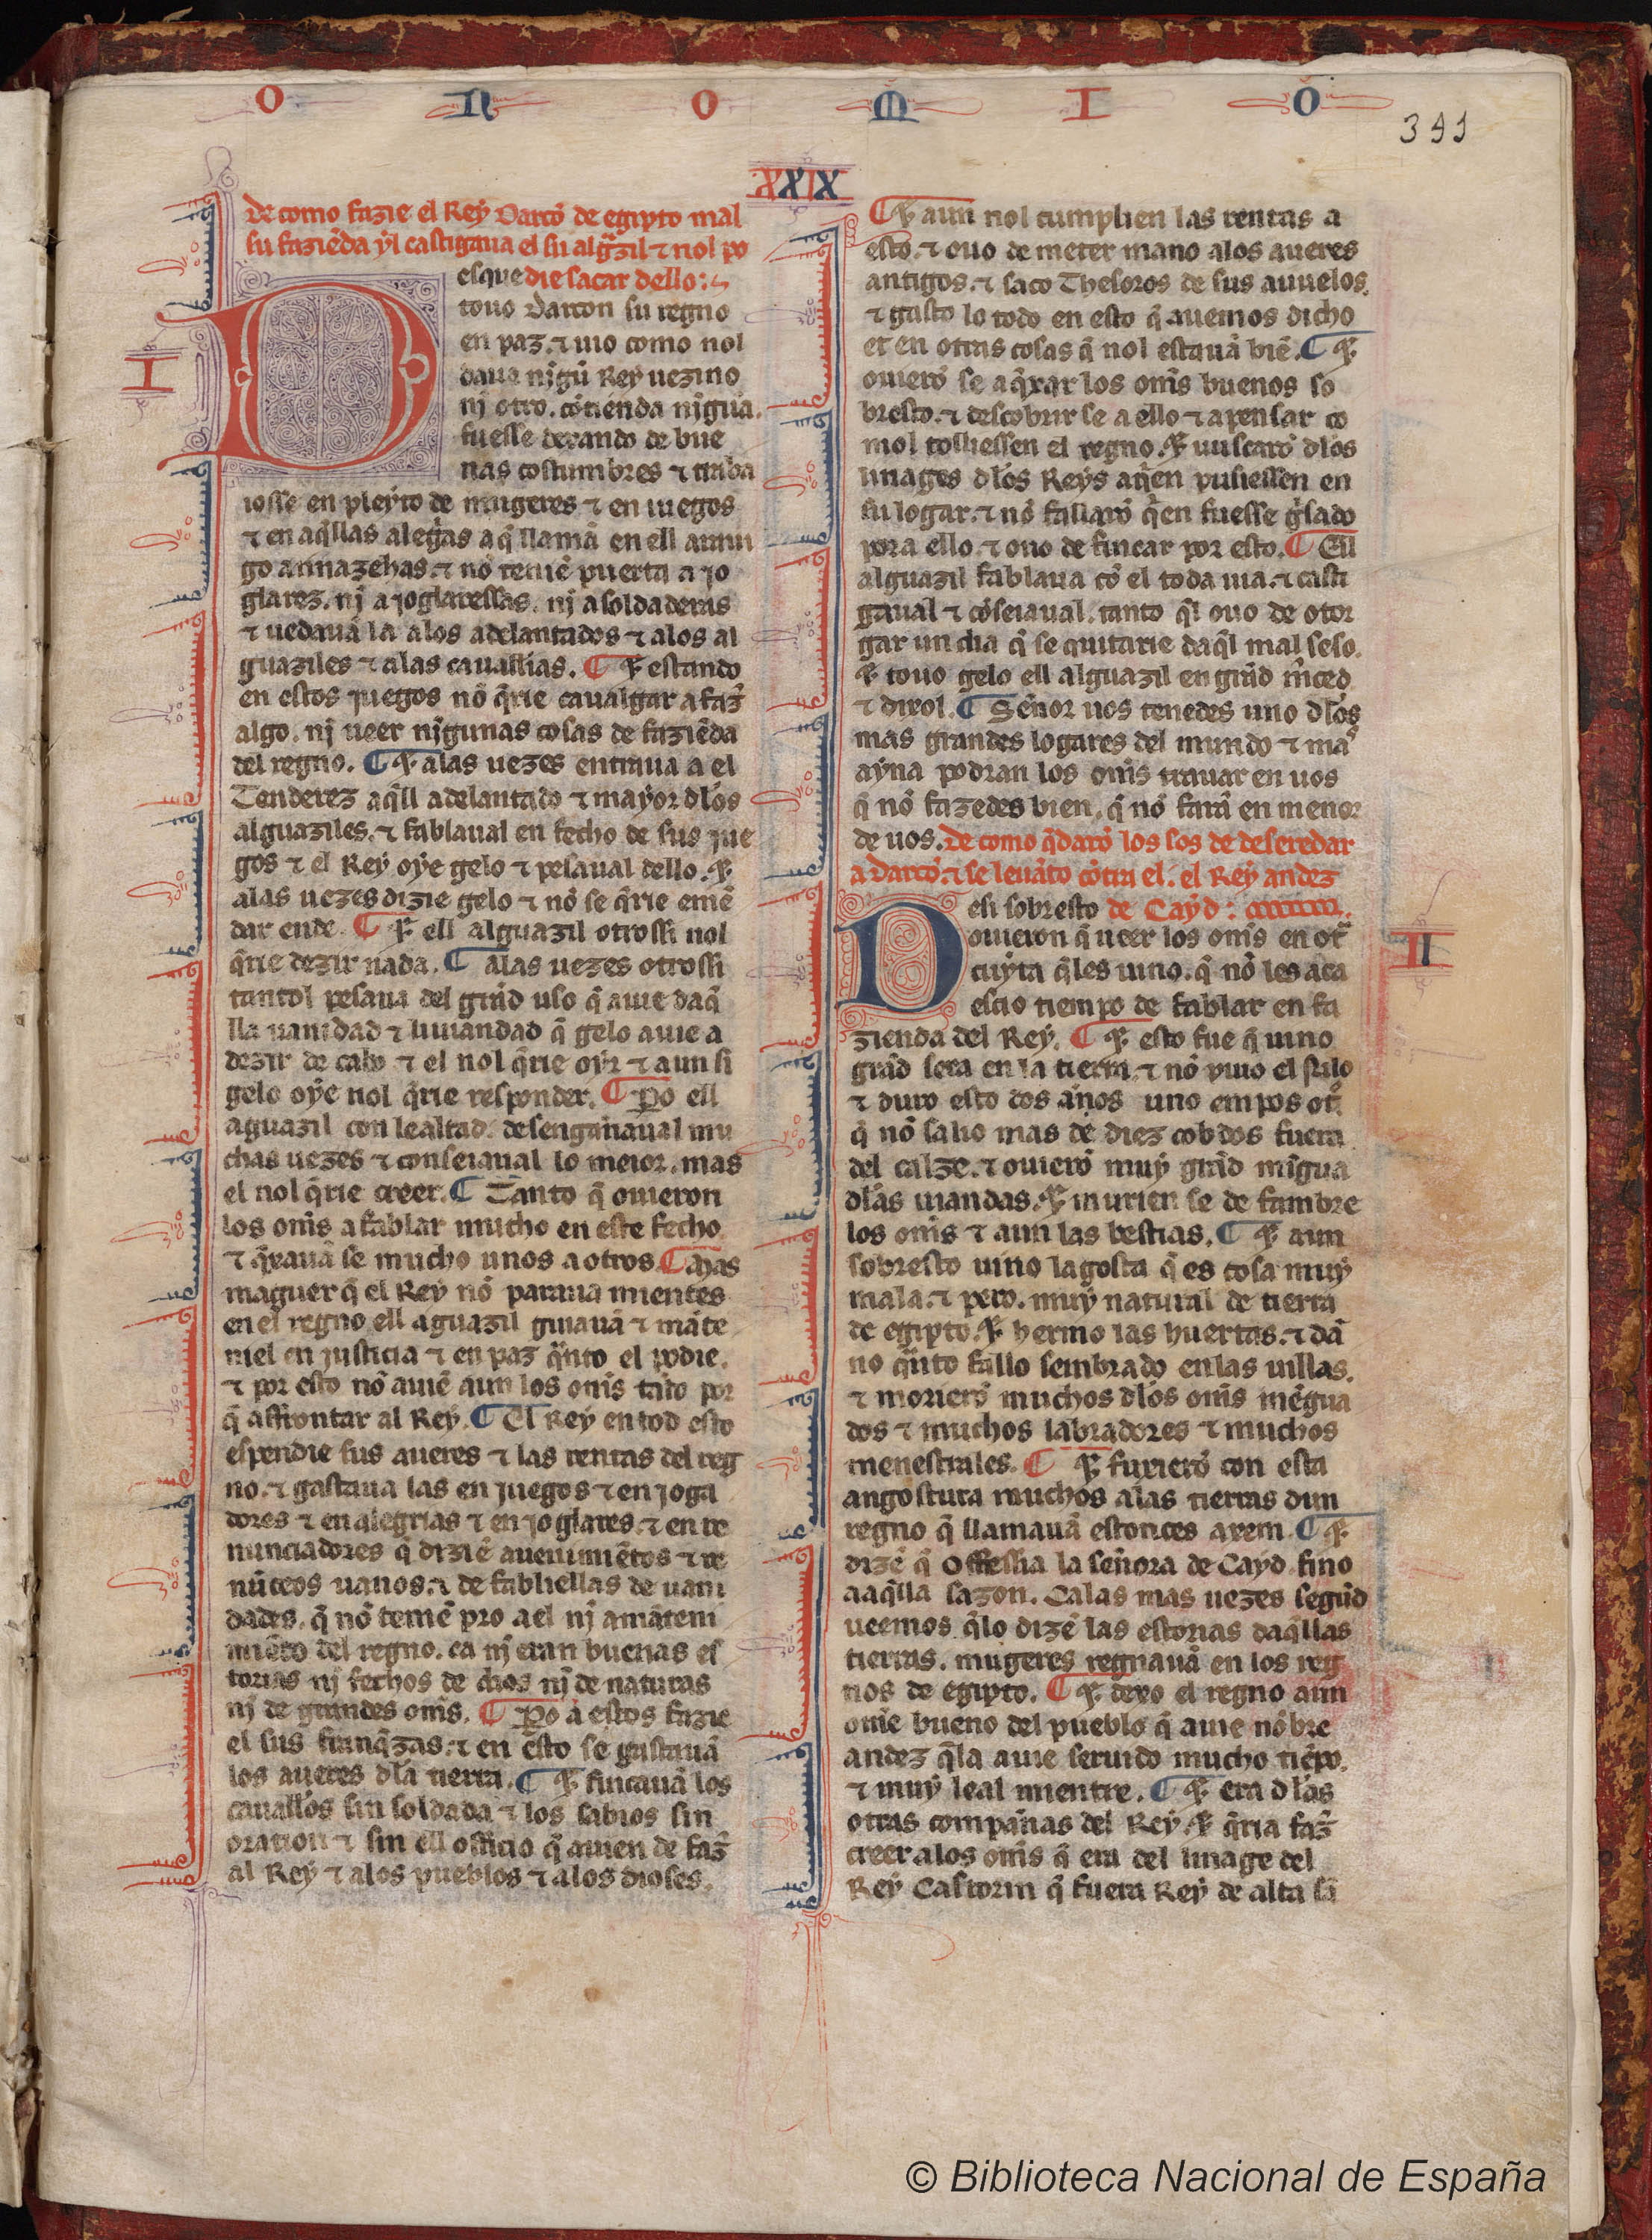 O N O M I O
391
XXIX
De como fazie el Rey Darcõ de egipto mal
su faziẽda yl castigaua el su alg̃zil ⁊ nol po
die sacar dello:
I
D esque
touo Darcon su regno
en paz. ⁊ uio como nol
daua nigũ Rey uezino
nj otro. cõtienda nigua.
fuesse dexando de bue
nas costumbres ⁊ traba
iosse en pleyto de mugeres ⁊ en iuegos
⁊ en aq̃llas alegⁱas aq̃ llamã en ell arauí
go almazehas. ⁊ nõ teniẽ puerta a jo
glarez. nj a joglaressas. nj a soldaderas
⁊ uedauã la alos adelantados ⁊ alos al
guaziles ⁊ alas cauallias. ¶ ⁊ estando
en estos juegos nõ q̃rie caualgar a faz̃
algo. nj ueer njgunas cosas de faziẽda
del regno. ¶ ⁊ alas uezes entraua a el
Tenderez aq̃ll adelantado ⁊ mayor dlos
alguaziles. ⁊ fablaual en fecho de sus jue
gos ⁊ el Rey oye gelo ⁊ pesaual dello. ⁊
alas uezes dizie gelo ⁊ nõ se q̃rie emẽ
dar ende. ¶ ⁊ ell alguazil otrossi nol
q̃rie dezir nada. ¶ alas uezes otrossi
tantol pesaua del grãd uso q̃ auie daq̃
lla uanidad ⁊ liuiandad q̃ gelo auie a
dezir de cabo ⁊ el nol q̃rie oyr ⁊ aun si
gelo oye nol q̃rie responder. ¶ Po ell
aguazil con lealtad. desengañaual mu
chas uezes ⁊ conseiaual lo meior. mas
el nol q̃rie creer. ¶ Tanto q̃ ouieron
los om̃s a fablar mucho en este fecho
⁊ q̃xauã se mucho unos a otros. ¶ Mas
maguer q̃ el Rey nõ paraua mientes
en el regno ell aguazil guiauã ⁊ mãte
niel en justicia ⁊ en paz q̃nto el podie.
⁊ por esto nõ auiẽ aun los om̃s tãto por
q̃ affrontar al Rey. ¶ El Rey en tod esto
espendie sus aueres ⁊ las rentas del reg
no. ⁊ gastaua las en juegos ⁊ en joga
dores ⁊ en alegrias ⁊ en joglares. ⁊ en re
nunciadores q̃ diziẽ auenimiẽtos ⁊ re
nũceos uanos. ⁊ de fabliellas de uani
dades. q̃ nõ teniẽ pro a el nj amãteni
miẽto del regno. ca nj eran buenas es
torias nj fechos de dios nj de naturas
nj de grandes om̃s. ¶ Po a estos fazie
el sus franq̃zas. ⁊ en esto se gastauã
los aueres dla tierra. ¶ ⁊ fincauã los
cauallos sin soldada ⁊ los sabios sin
oration ⁊ sin ell officio q̃ auien de faz̃
al Rey ⁊ alos pueblos ⁊ alos dioses.
¶ ⁊ aun nol cumplien las rentas a
esto. ⁊ ouo de meter mano alos aueres
antigos. ⁊ saco Thesoros de sus auuelos.
⁊ gasto lo todo en esto q̃ auemos dicho
et en otras cosas q̃ nol estauã biẽ. ¶ ⁊
ouierõ se a q̃xar los om̃s buenos so
bresto. ⁊ descobrir se a ello ⁊ a pensar co
mol tolliessen el regno. ⁊ buscarõ dlos
linages dlos Reys aq̃en pusiessen en
su logar. ⁊ nõ fallarõ q̃en fuesse g̃sado
pora ello. ⁊ ouo de fincar por esto. ¶ Ell
alguazil fablaua cõ el toda uia. ⁊ casti
gaual ⁊ cõseiaual. tanto q̃l ouo de otor
gar un dia q̃ se quitarie daq̃l mal seso.
⁊ touo gelo ell alguazil en grãd m̃ced
⁊ dixol. ¶ Sẽnor uos tenedes uno dlos
mas grandes logares del mundo ⁊ mas
ayna podran los om̃s trauar en uos
q̃ nõ fazedes bien. q̃ nõ farã en menor
de uos. De como q̃darõ los sos de deseredar
a Darcõ. ⁊ se leuãto cõtra el. el Rey andez
de Cayd:
II
D esi sobresto
ouieron q̃ ueer los om̃s en otᵃ
cuyta q̃les uino. q̃ nõ les aca
escio tiempo de fablar en fa
zienda del Rey. ¶ ⁊ esto fue q̃ uino
grãd seca en la tierra. ⁊ nõ uino el nilo
⁊ duro esto dos annos uno empos otᵒ
q̃ nõ salio mas de diez cobdos fuera
del calze. ⁊ ouierõ muy grãd mĩgua
dlas uiandas. ⁊ murien se de fambre
los om̃s ⁊ aun las bestias. ¶ ⁊ aun
sobresto uino lagosta q̃ es cosa muy
mala. ⁊ pero. muy natural de tierra
de egipto. ⁊ hermo las huertas. ⁊ dã
no q̃nto fallo sembrado en las uillas.
⁊ morierõ muchos dlos om̃s mẽgua
dos ⁊ muchos labradores ⁊ muchos
menestrales. ¶ ⁊ fuxierõ con esta
angostura muchos alas tierras dun
regno q̃ llamauã estonces axem. ¶ ⁊
dizẽ q̃ Offessia la señora de Cayd. fino
aaq̃lla sazon. Ca las mas uezes segũd
ueemos q̃lo dizẽ las estorias daq̃llas
tierras. mugeres regnauã en los reg
nos de egipto. ¶ ⁊ dexo el regno a un
om̃e bueno del pueblo q̃ auie nõbre
andez q̃la auie seruido mucho tiẽpo.
⁊ muy leal mientre. ¶ ⁊ era dlas
otras compañas del Rey. ⁊ q̃ria faz̃
creer alos om̃s q̃ era del linage del
Rey Castorin q̃ fuera Rey de alta sã
© Biblioteca Nacional de España